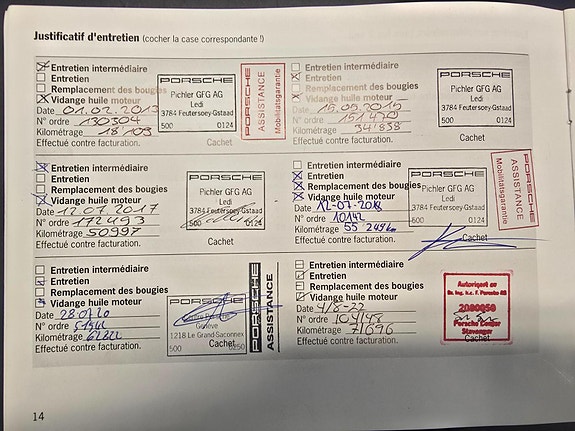 Justificatif d'entretien (cocher la case correspondante !)
Entretien intermédiaire
Entretien
Remplacement des bougies
Vidange huile moteur
Date 01.02.2013
N° ordre 130304
Kilométrage 18'103
Effectué contre facturation.
PORSCHE
Pichler GFG AG
Ledi
3784 Feutersoey-Gstaad
500 0124
Cachet
PORSCHE
ASSISTANCE
Mobilitätsgarantie
Entretien intermédiaire
Entretien
Remplacement des bougies
Vidange huile moteur
Date 15.05.2015
N° ordre 151470
Kilométrage 34'838
Effectué contre facturation.
PORSCHE
Pichler GFG AG
Ledi
3784 Feutersoey-Gstaad
500 0124
Cachet
Entretien intermédiaire
Entretien
Remplacement des bougies
Vidange huile moteur
Date 12.07.2017
N° ordre 172493
Kilométrage 50997
Effectué contre facturation.
PORSCHE
Pichler GFG AG
Ledi
3784 Feutersoey-Gstaad
500 0124
Cachet
Entretien intermédiaire
Entretien
Remplacement des bougies
Vidange huile moteur
Date 12-07-2018
N° ordre 10142
Kilométrage 55 249km
Effectué contre facturation.
PORSCHE
Pichler GFG AG
Ledi
3784 Feutersoey-Gstaad
500 0124
Cachet
PORSCHE
ASSISTANCE
Mobilitätsgarantie
Entretien intermédiaire
Entretien
Remplacement des bougies
Vidange huile moteur
Date 28.07.20
N° ordre
Kilométrage
Effectué contre facturation.
PORSCHE
Genève
1218 Le Grand-Saconnex
500 0250
Cachet
PORSCHE
ASSISTANCE
Entretien intermédiaire
Entretien
Remplacement des bougies
Vidange huile moteur
Date 4/8-22
N° ordre 104148
Kilométrage 71696
Effectué contre facturation.
Autorisert av
Dr. Ing. h.c. F. Porsche AG
Porsche Center
Stavanger
Cachet
14